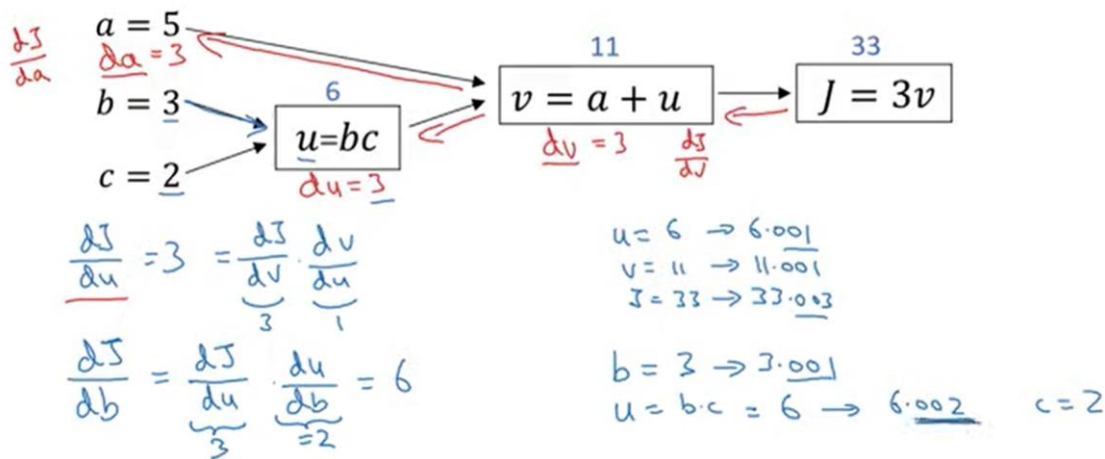 a = 5
dJ/da
da = 3
b = 3
c = 2
6
u=bc
du = 3
11
v = a + u
dv = 3 dJ/dv
33
J = 3v
dJ/du = 3 = dJ/dv · dv/du
3 1
dJ/db = dJ/du · du/db = 6
3 =2
u = 6 → 6.001
v = 11 → 11.001
J = 33 → 33.003
b = 3 → 3.001
u = b·c = 6 → 6.002 c = 2